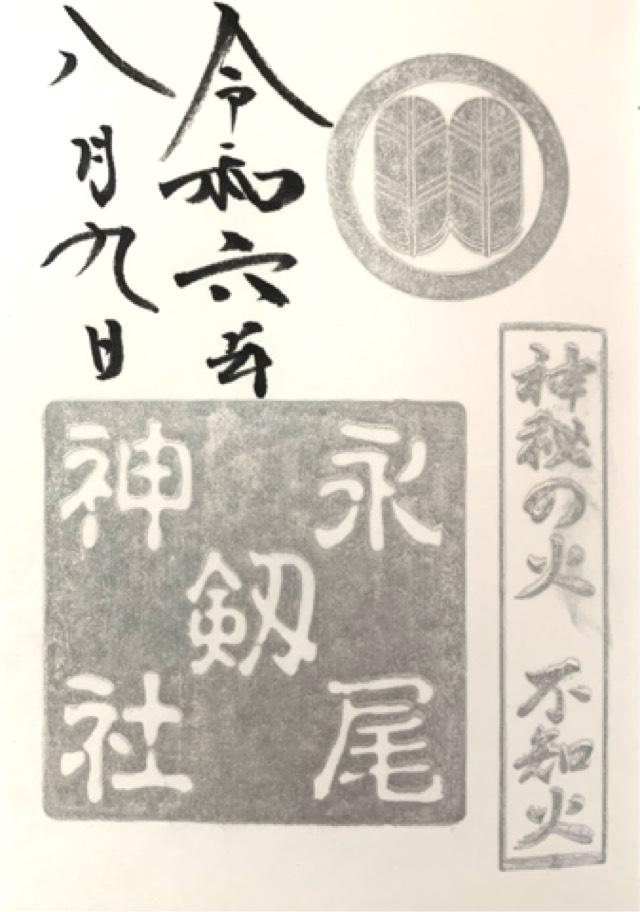 神秘の火 不知火
令和六年
八月九日
永尾
剱
神社